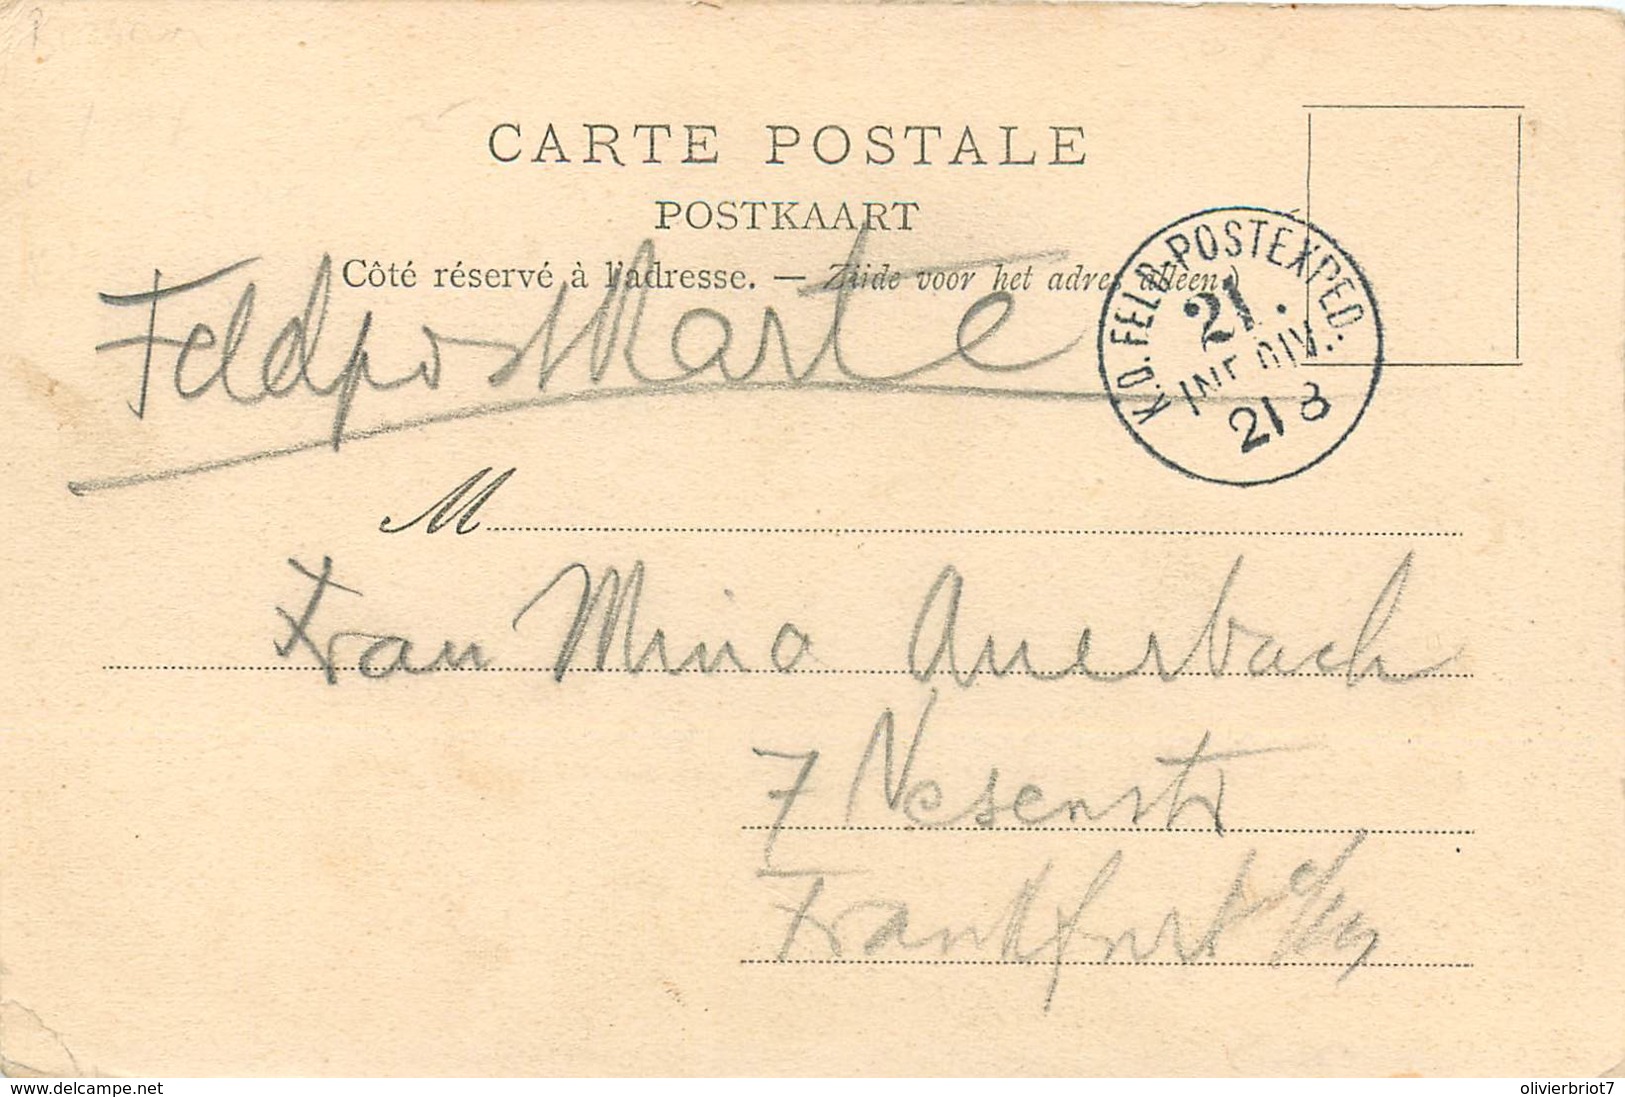 CARTE POSTALE
POSTKAART
Côté réservé à l'adresse. — Zijde voor het adres alléén.)
Feldpostkarte
K.D. FELD-POSTEXPED.
21.
INF. DIV.
21 8
M
Frau Mina Auerbach
7 Nesenstr
Frankfurt a/M
www.delcampe.net
olivierbriot7